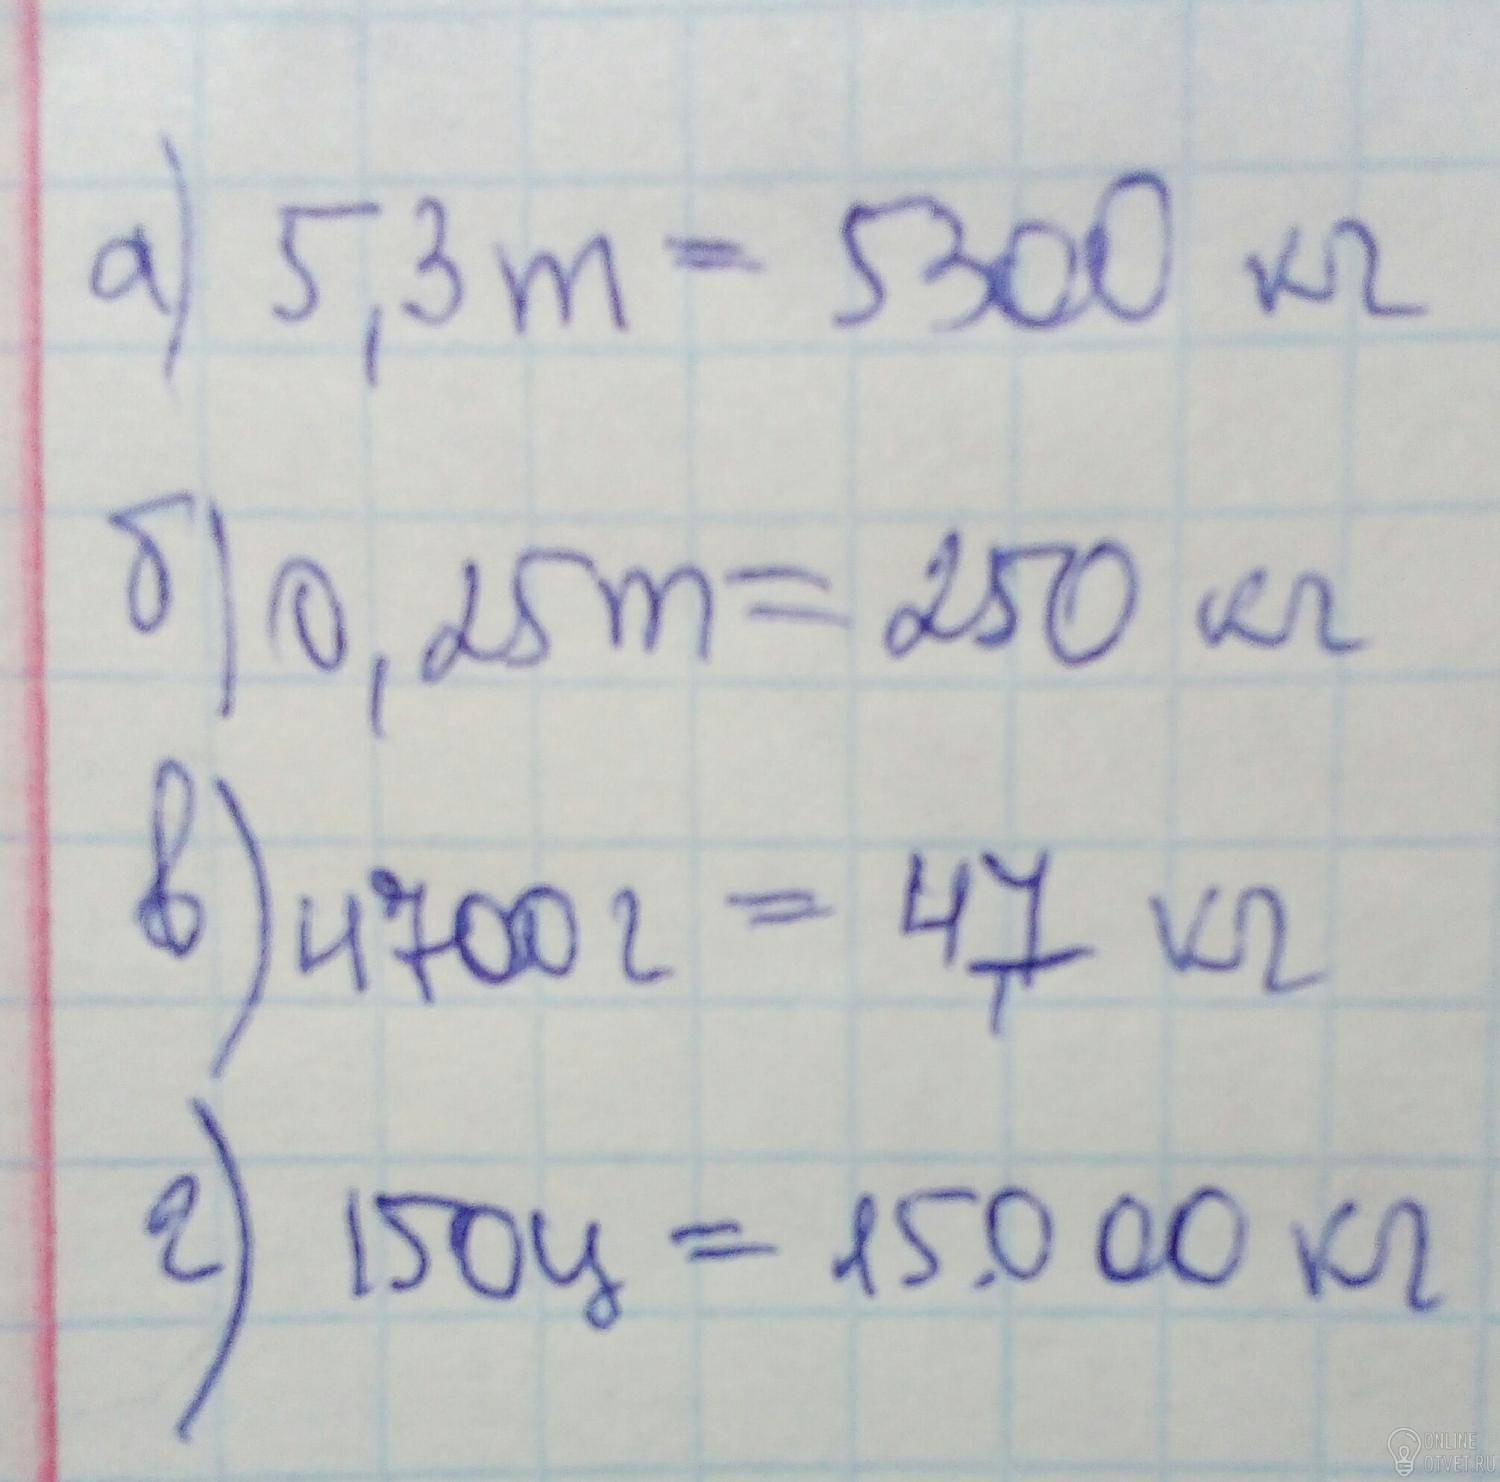 а) 5,3т = 5300 кг
б) 0,25т = 250 кг
в) 4700г = 4,7 кг
г) 150ц = 15.000 кг
ONLINE
OTVET.RU